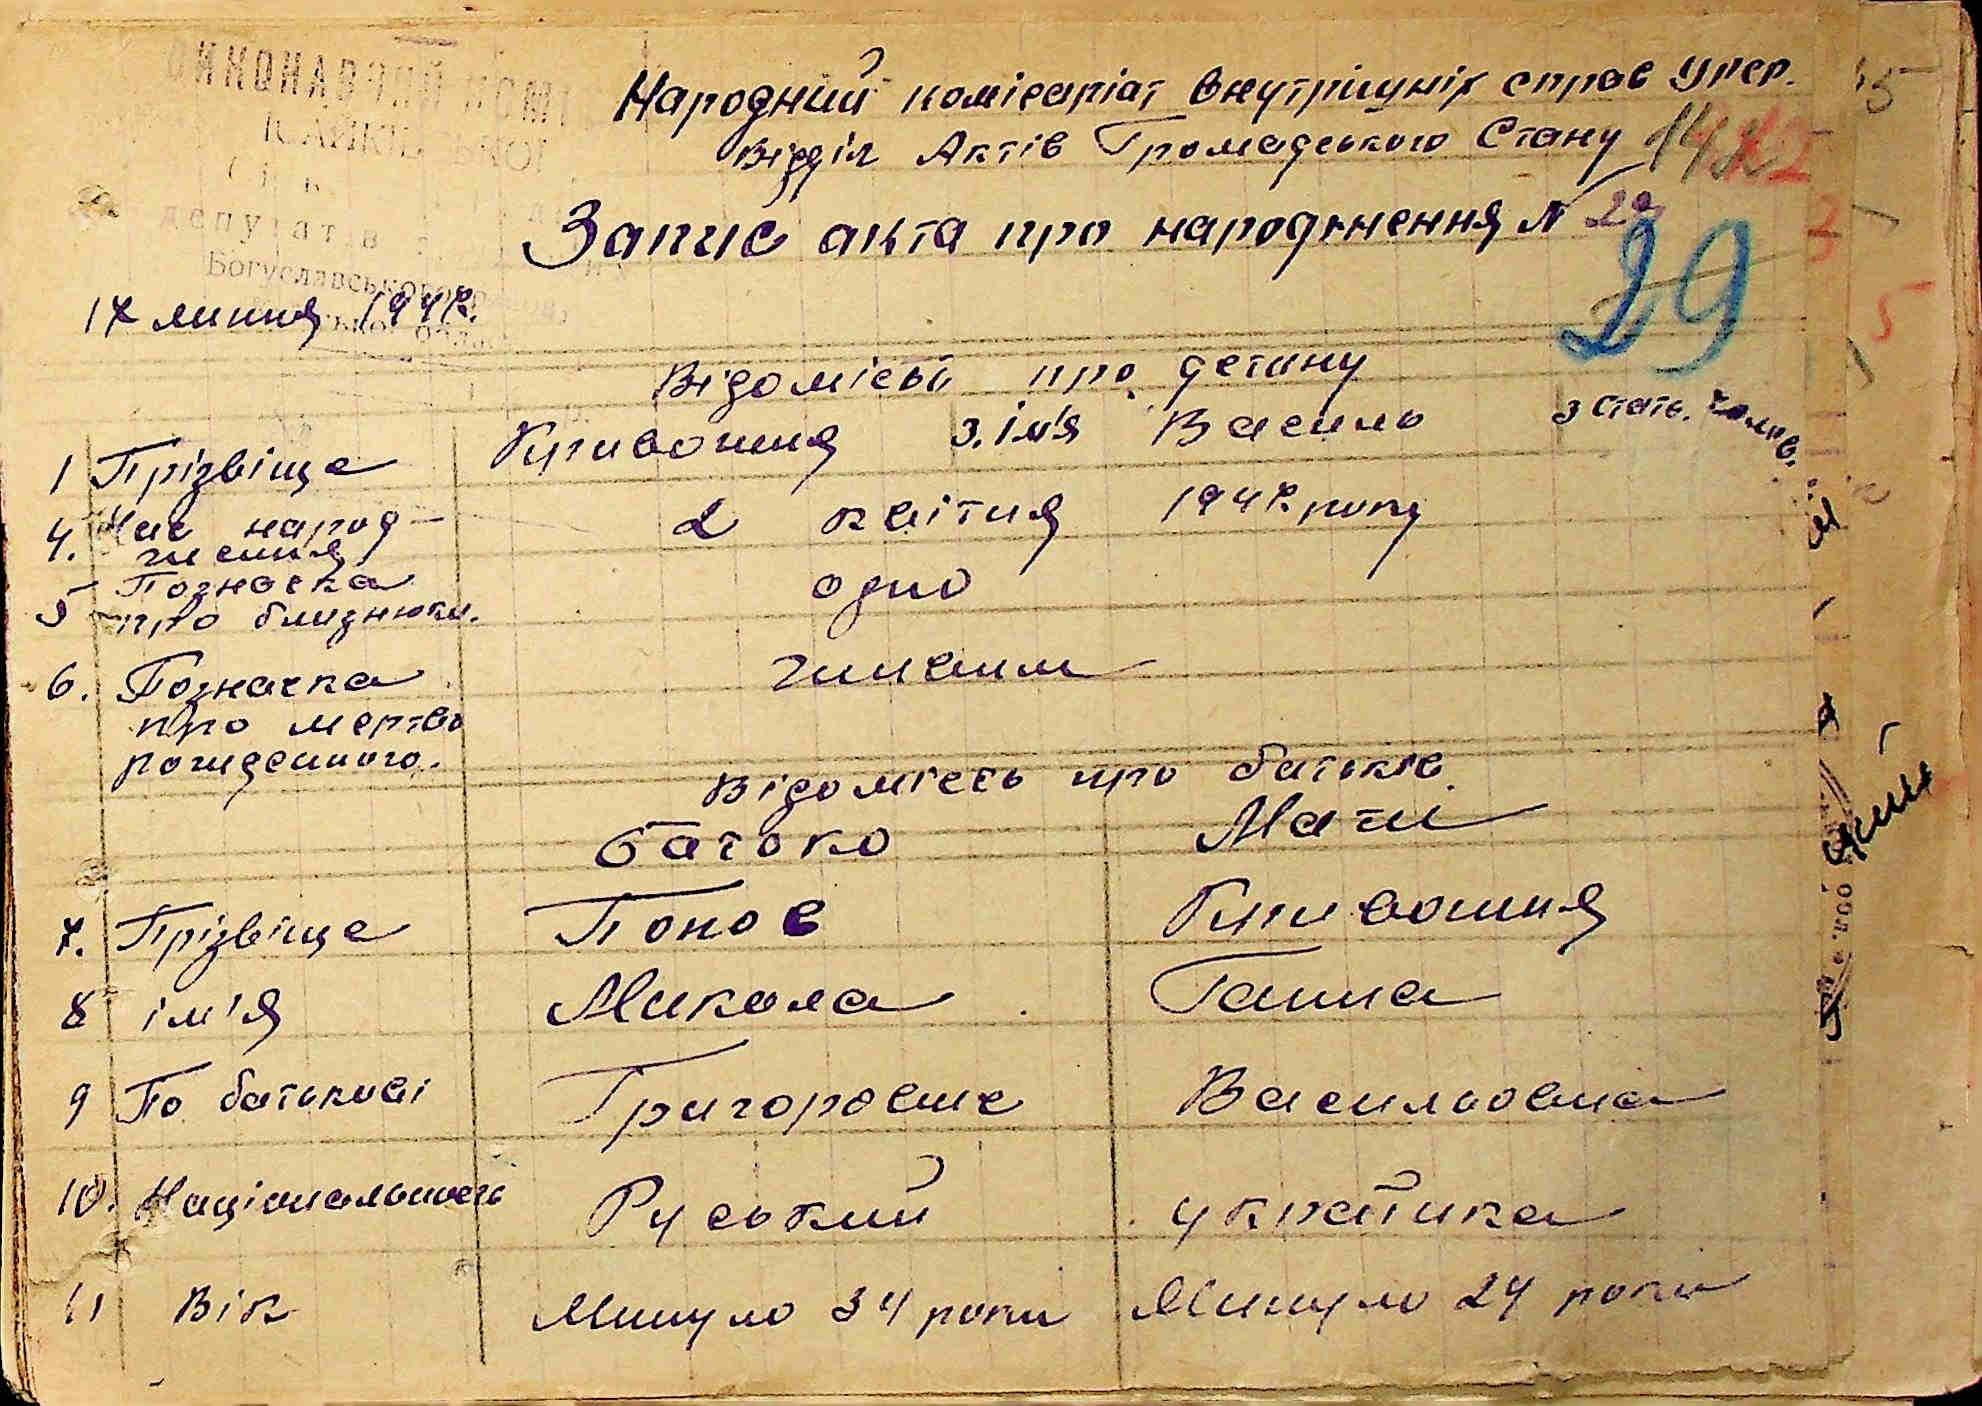 ВИКОНАВЧИЙ КОМІ
ІСАЙКІВСЬКОЇ
депутатів
Богуславського
Народний комісаріат внутрішніх справ УРСР.
Відділ Актів Громадського Стану
Запис акта про народження N 29
29
17 липня 1944р.
Відомість про детину
1 Прізвіще Кривошия 3. ім'я Василь 3 стать. чолов.
4. Час народ-
ження 2 квітня 1944 року
5 Позначка
про близнюки. одно
6. Позначка живим
про мертво
рожденного.
Відомість про батьків.
батько Мати
7. Прізвіще Попов Кривошия
8 ім'я Микола Ганна
9 По батькові Григорович Васильовна
10. Національность Руський украйнка
11 Вік Минуло 34 роки Минуло 24 роки